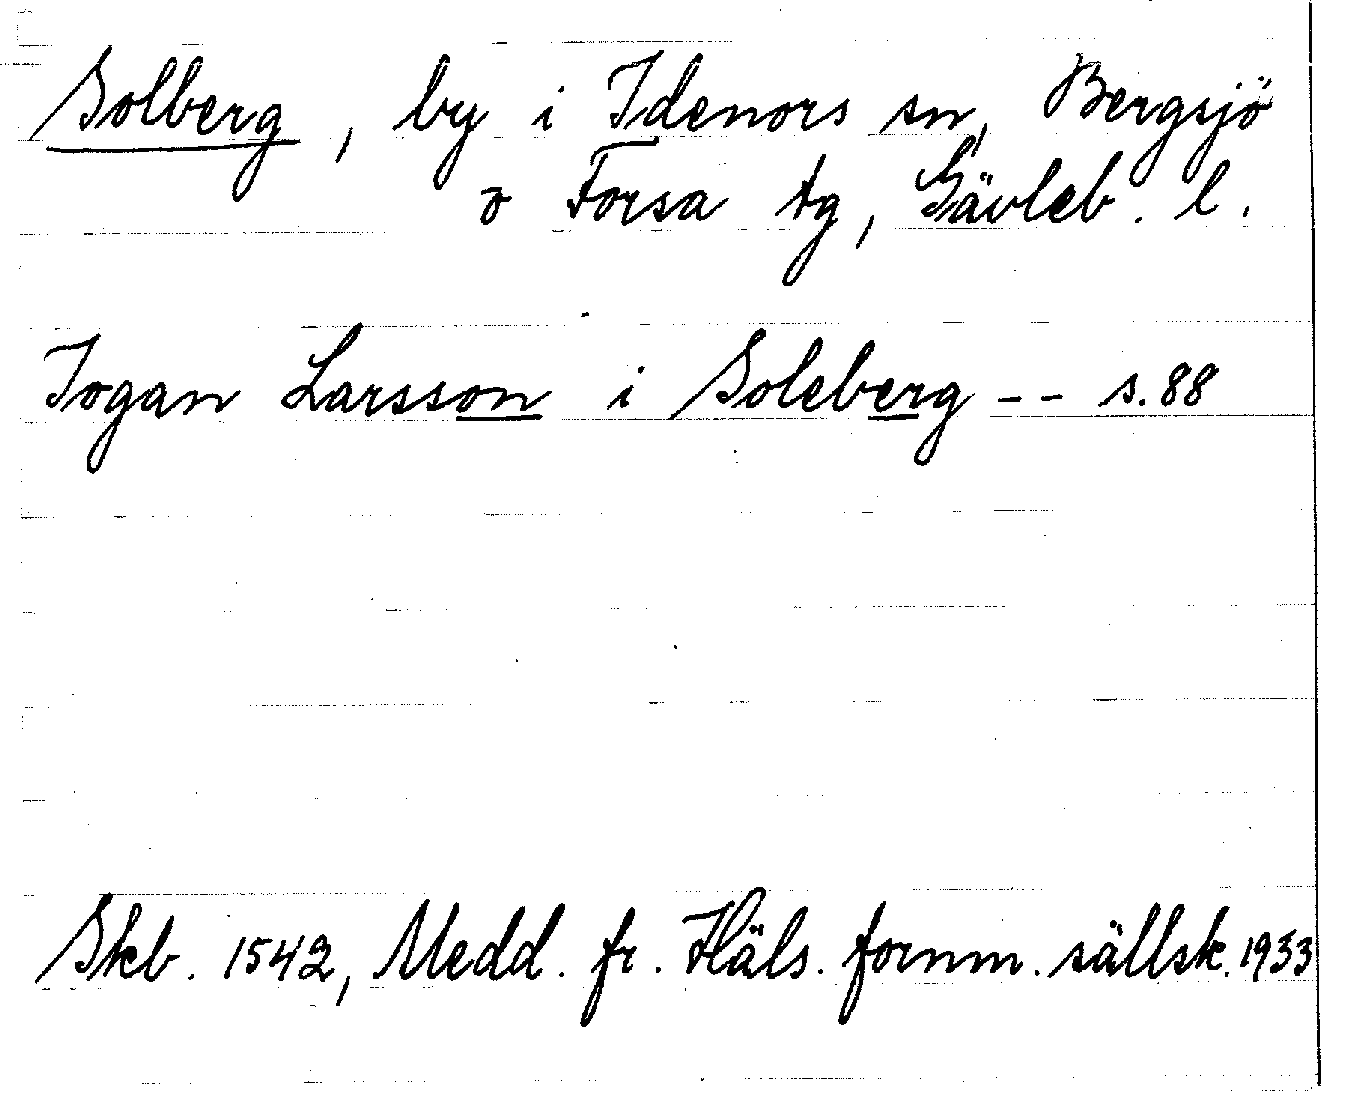 Solberg, by i Idenors sn, Bergsjö
o Forsa tg, Gävleb. l.
Jogan Larsson i Soleberg -- s. 88
Skb. 1542, Medd. fr. Häls. fornm. sällsk. 1933